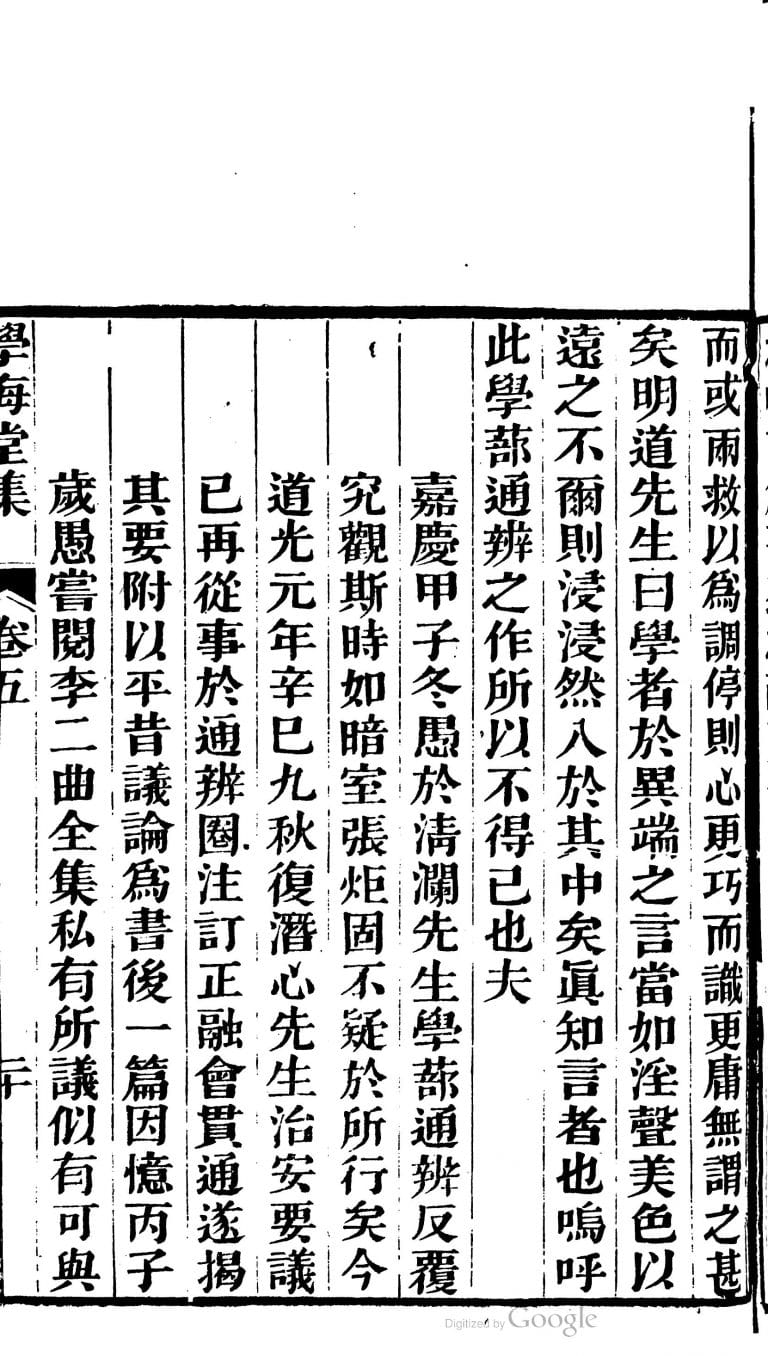 而或兩救以爲調停則心更巧而識更庸無謂之甚
矣明道先生曰學者於異端之言當如淫聲美色以
遠之不爾則浸浸然入於其中矣眞知言者也嗚呼
此學蔀通辨之作所以不得已也夫
嘉慶甲子冬愚於淸瀾先生學蔀通辨反覆
究觀斯時如暗室張炬固不疑於所行矣今
道光元年辛巳九秋復潛心先生治安要議
已再從事於通辨圈注訂正融會貫通遂揭
其要附以平昔議論爲書後一篇因憶丙子
歲愚嘗閱李二曲全集私有所議似有可與
學海堂集 卷五 二十
Digitized by Google